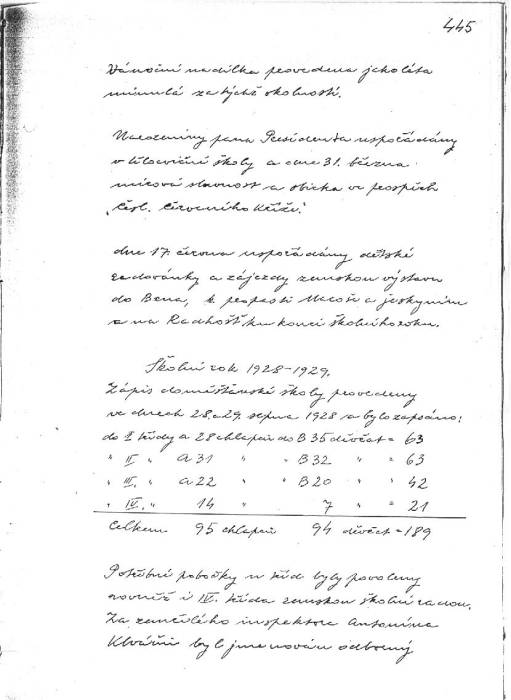 445
Vánoční nadílka provedena jako léta
minulá za týchž okolností.
Narozeniny pana Presidenta uspořádány
v tělocvičně školy a dne 31. března
mírová slavnost a sbírka ve prospěch
"Čsl. Červeného Kříže."
dne 17. června uspořádány dětské
radovánky a zájezdy zemskou výstavu
do Brna, k propasti Macoše a jeskyním
a na Radhošť ku konci školního roku.
Školní rok 1928-1929.
Zápis do měšťanské školy provedený
ve dnech 28 a 29. srpna 1928 a bylo zapsáno:
do I třídy a 28 chlapců do B 35 děvčat = 63
" II " a 31 " " B 32 " " 63
" III. " a 22 " " B 20 " " 42
" IV. " 14 " 7 " " 21
Celkem 95 chlapců 94 děvčat = 189
Potřebné pobočky u tříd byly povoleny
rovněž i IV. třída zemskou školní radou.
Za zemřelého inspektora Antonína
byl jmenován odborný